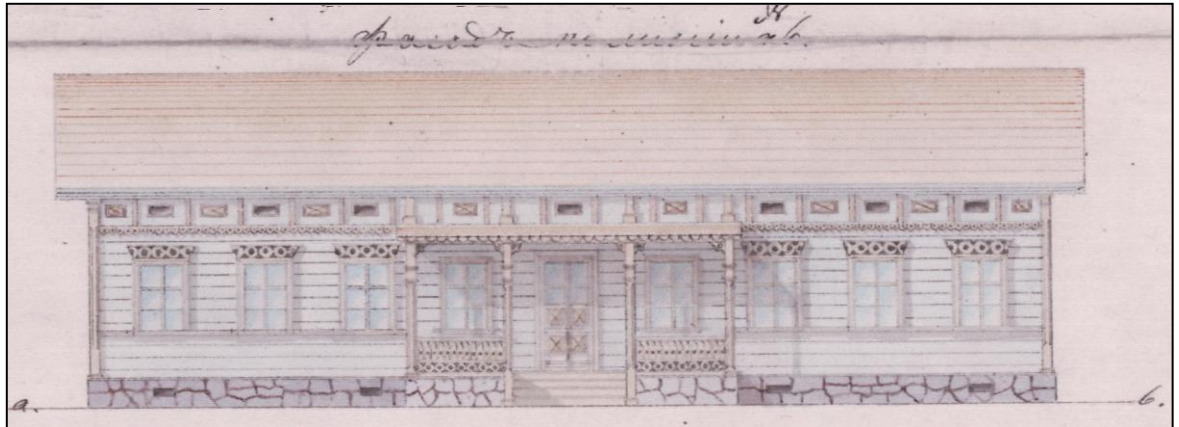 фасадъ по линіи аб.
а.
б.